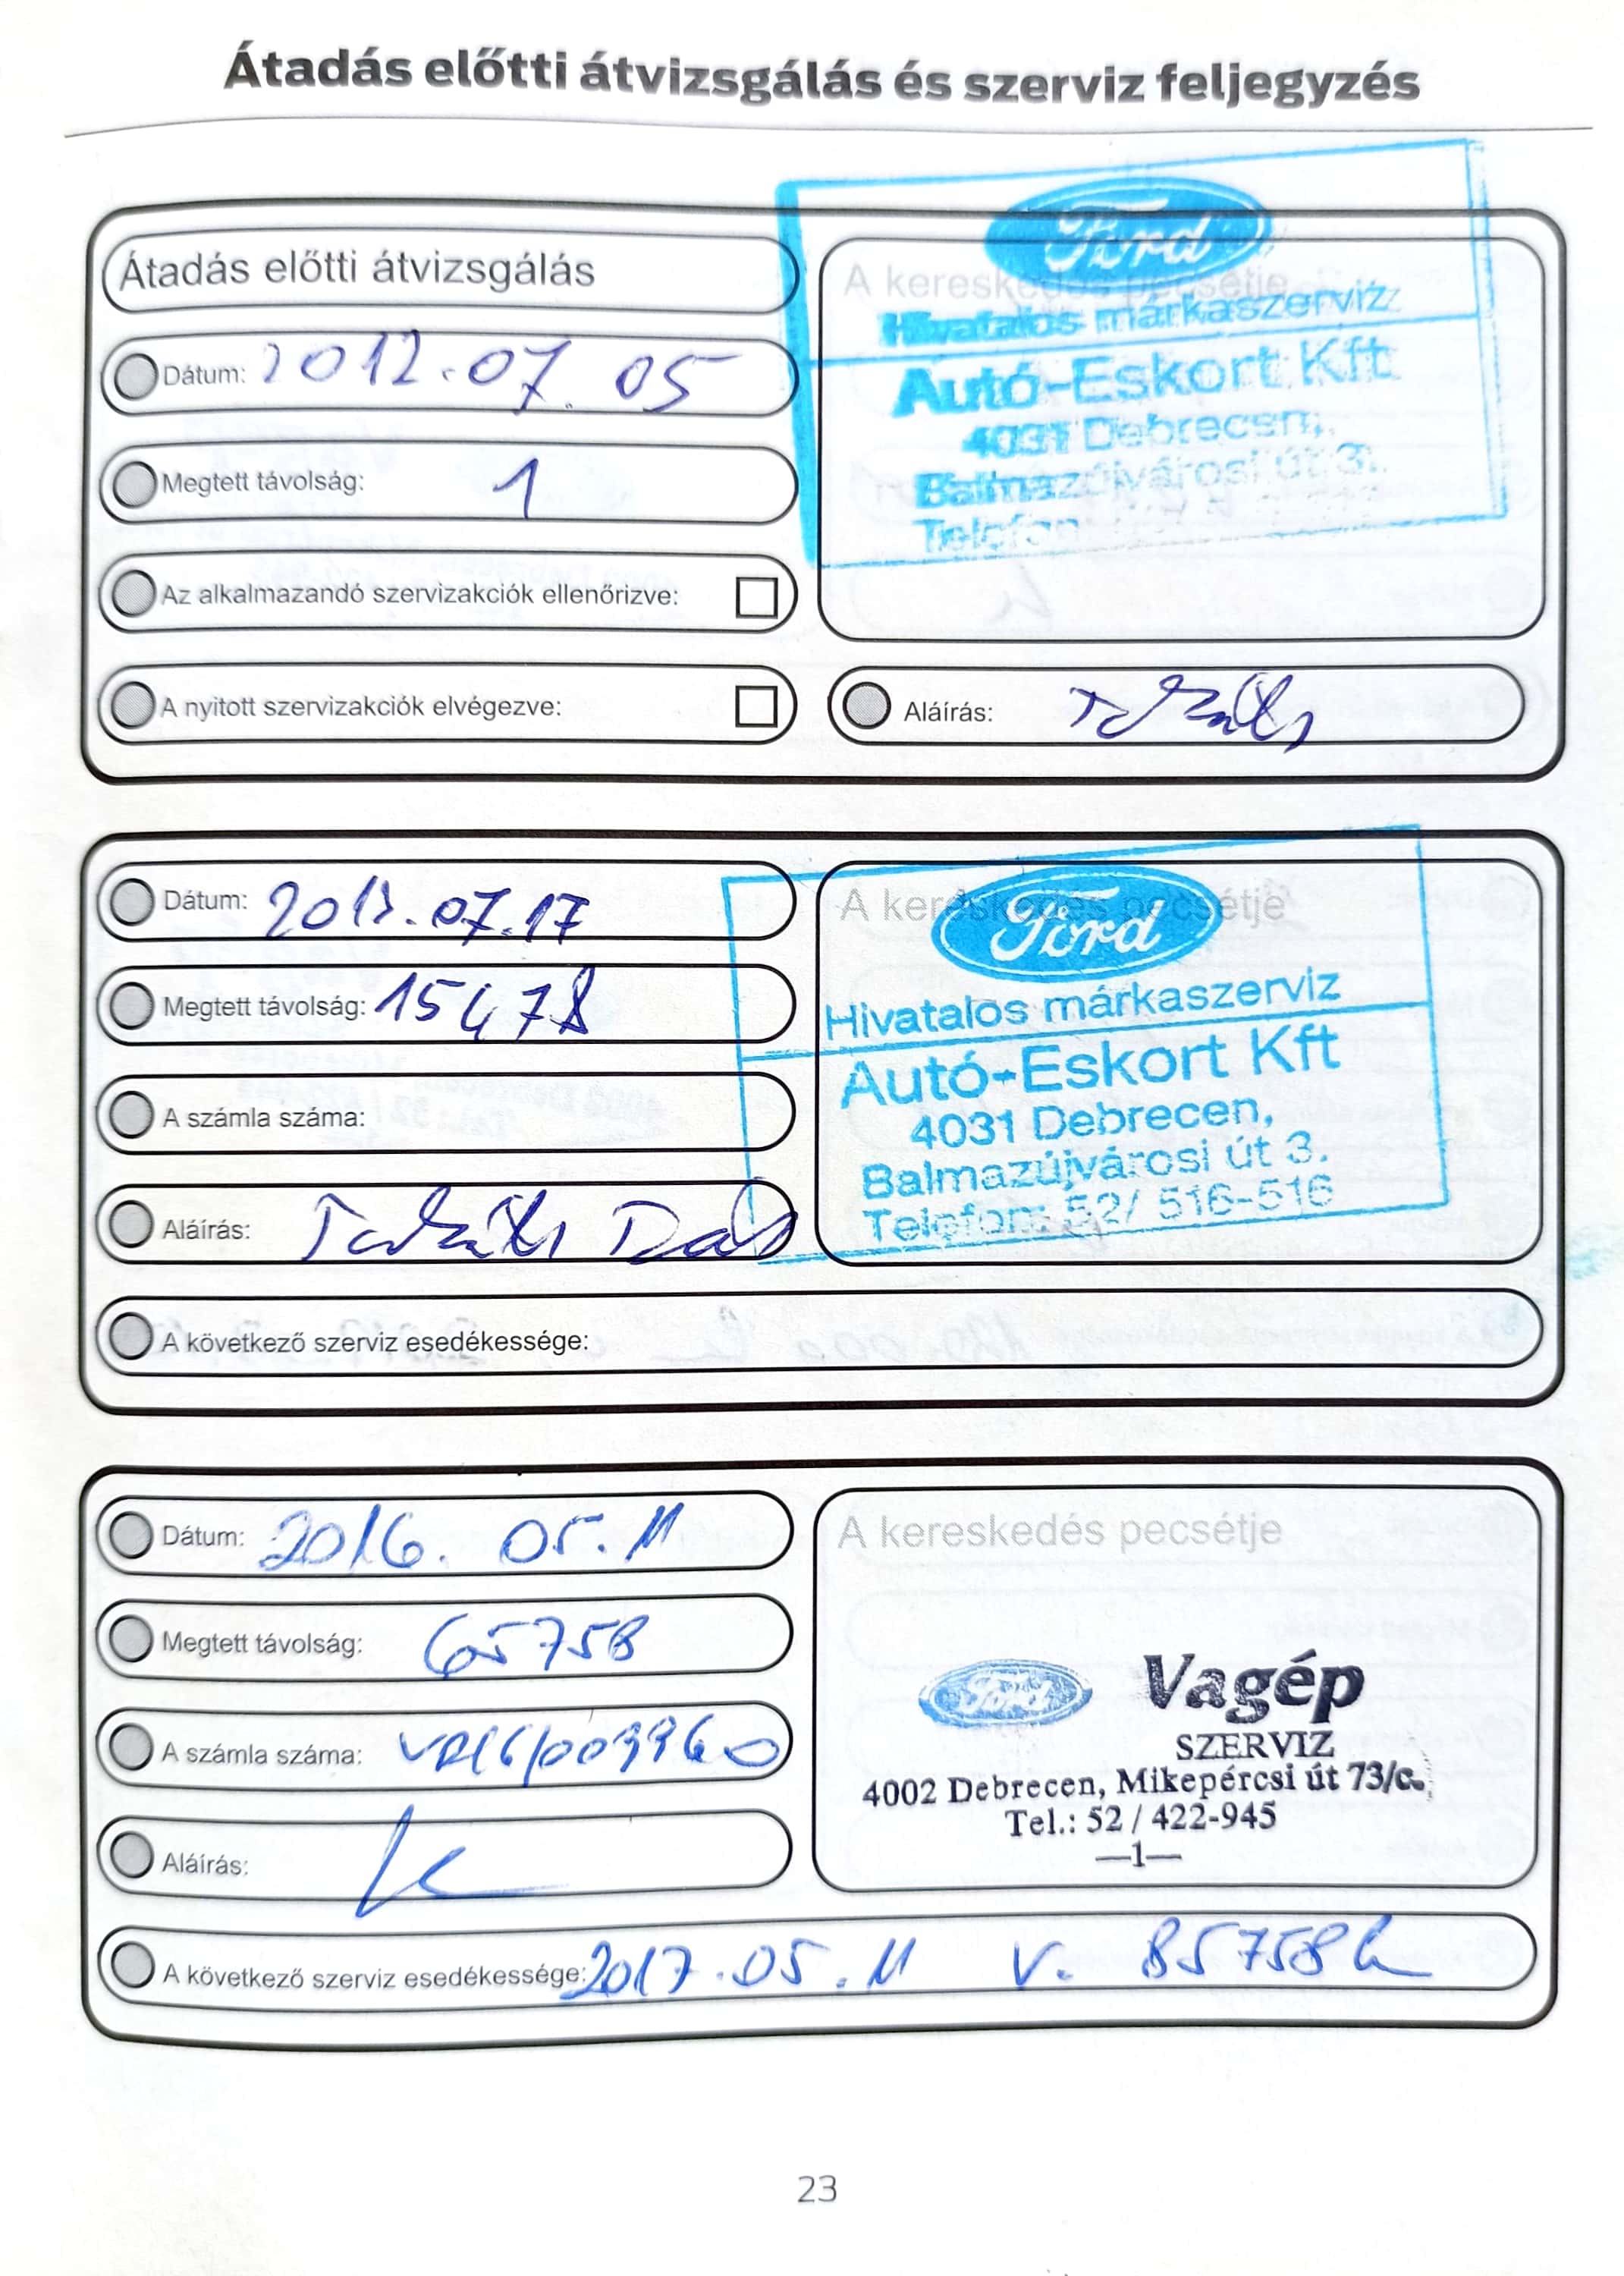 Átadás előtti átvizsgálás és szerviz feljegyzés
Átadás előtti átvizsgálás
Dátum: 2012.07.05
Megtett távolság: 1
Az alkalmazandó szervizakciók ellenőrizve:
A nyitott szervizakciók elvégezve:
A kereskedés pecsétje
Ford
Hivatalos márkaszerviz
Autó-Eskort Kft
4031 Debrecen,
Balmazújvárosi út 3.
Telefon
Aláírás:
Dátum: 2013.07.17
Megtett távolság: 15478
A számla száma:
Aláírás:
A kereskedés pecsétje
Ford
Hivatalos márkaszerviz
Autó-Eskort Kft
4031 Debrecen,
Balmazújvárosi út 3.
Telefon: 52/ 516-516
A következő szerviz esedékessége:
Dátum: 2016. 05. 11
Megtett távolság: 65758
A számla száma:
Aláírás:
A kereskedés pecsétje
Ford
Vagép
SZERVIZ
4002 Debrecen, Mikepércsi út 73/c.
Tel.: 52 / 422-945
—1—
A következő szerviz esedékessége: 2017.05.11 v. 85758
23